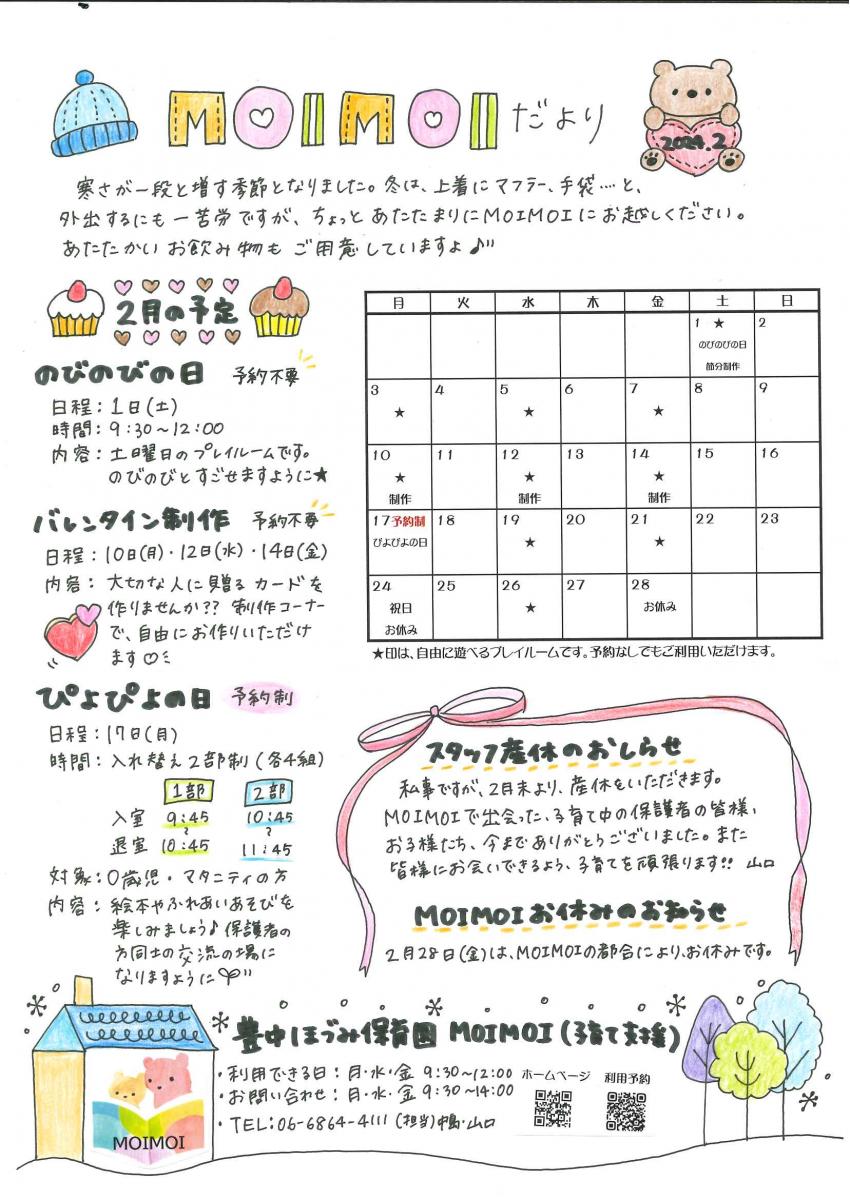 MOIMOIだより
2024.2
寒さが一段と増す季節となりました。冬は、上着にマフラー、手袋‥‥と、
外出するにも一苦労ですが、ちょっとあたたまりにMOIMOIにお越しください。
あたたかいお飲み物もご用意していますよ♪
2月の予定
のびのびの日 予約不要
日程：1日(土)
時間：9:30〜12:00
内容：土曜日のプレイルームです。
のびのびとすごせますように★
バレンタイン制作 予約不要
日程：10日(月)・12日(水)・14日(金)
内容：大切な人に贈るカードを
作りませんか?? 制作コーナー
で、自由にお作りいただけ
ます♡
ぴよぴよの日 予約制
日程：17日(月)
時間：入れ替え2部制(各4組)
1部 2部
入室 9:45 10:45
〜 〜
退室 10:45 11:45
対象：0歳児・マタニティの方
内容：絵本やふれあいあそびを
楽しみましょう♪ 保護者の
方同士の交流の場に
なりますように
月 火 水 木 金 土 日
1 ★ 2
のびのびの日
節分制作
3 4 5 6 7 8 9
★ ★ ★
10 11 12 13 14 15 16
★ ★ ★
制作 制作 制作
17予約制 18 19 20 21 22 23
ぴよぴよの日 ★ ★
24 25 26 27 28
祝日 ★ お休み
お休み
★印は、自由に遊べるプレイルームです。予約なしでもご利用いただけます。
スタッフ産休のおしらせ
私事ですが、2月末より、産休をいただきます。
MOIMOIで出会った、子育て中の保護者の皆様、
お子様たち、今までありがとうございました。また
皆様にお会いできるよう、子育てを頑張ります!! 山口
MOIMOIお休みのお知らせ
2月28日(金)は、MOIMOIの都合により、お休みです。
豊中ほづみ保育園 MOIMOI(子育て支援)
・利用できる日：月・水・金 9:30〜12:00
・お問い合わせ：月・水・金 9:30〜14:00
・TEL：06-6864-4111 (担当)中嶋・山口
ホームページ 利用予約
MOIMOI